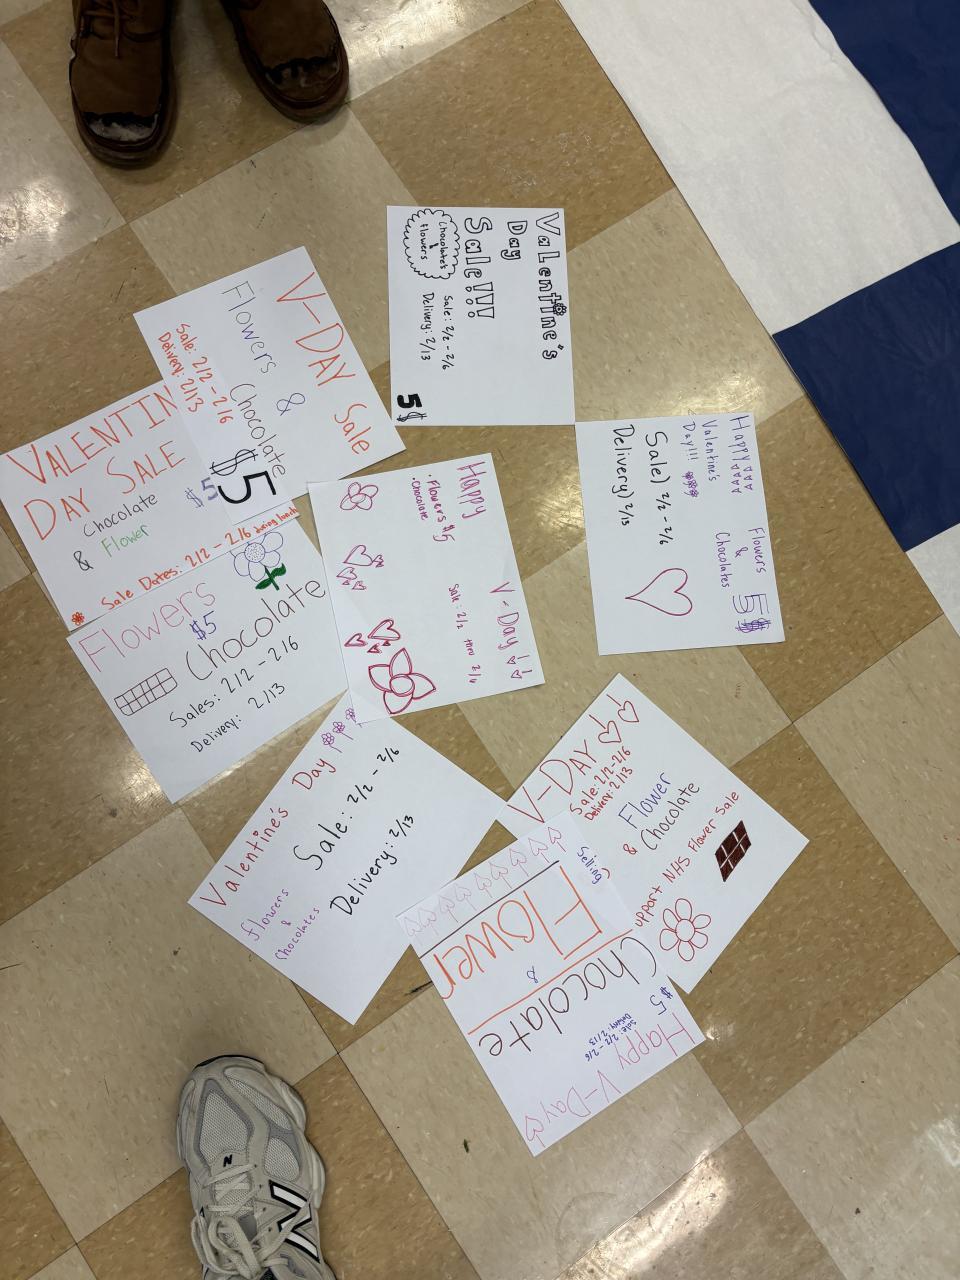 Valentine's
Day
Sale!!!
Chocolate's
&
flowers
Sale: 2/2 - 2/6
Delivery: 2/13
5$
V-DAY Sale
Flowers &
Chocolate
$5
Sale: 2/2 - 2/6
Delivery: 2/13
VALENTIN
DAY SALE
Chocolate
& Flower
$5
Sale Dates: 2/2 - 2/6 during lunch
Flowers
$5
Chocolate
Sales: 2/2 - 2/6
Delivery: 2/13
Happy
V-Day!
• Flowers $5
• Chocolate
Sale: 2/2 thru 2/6
Happy
Valentine's
Day!!!
Flowers
&
Chocolates
5$
Sale) 2/2 - 2/6
Delivery) 2/13
Valentine's Day
Sale: 2/2 - 2/6
Delivery: 2/13
flowers
&
Chocolates
V-DAY
Sale: 2/2-2/6
Delivery: 2/13
Flower
& Chocolate
upport NHS Flower Sale
Selling
Flower
&
Chocolate
$5
Sale: 2/2 - 2/6
Delivery: 2/13
Happy V-Day
N